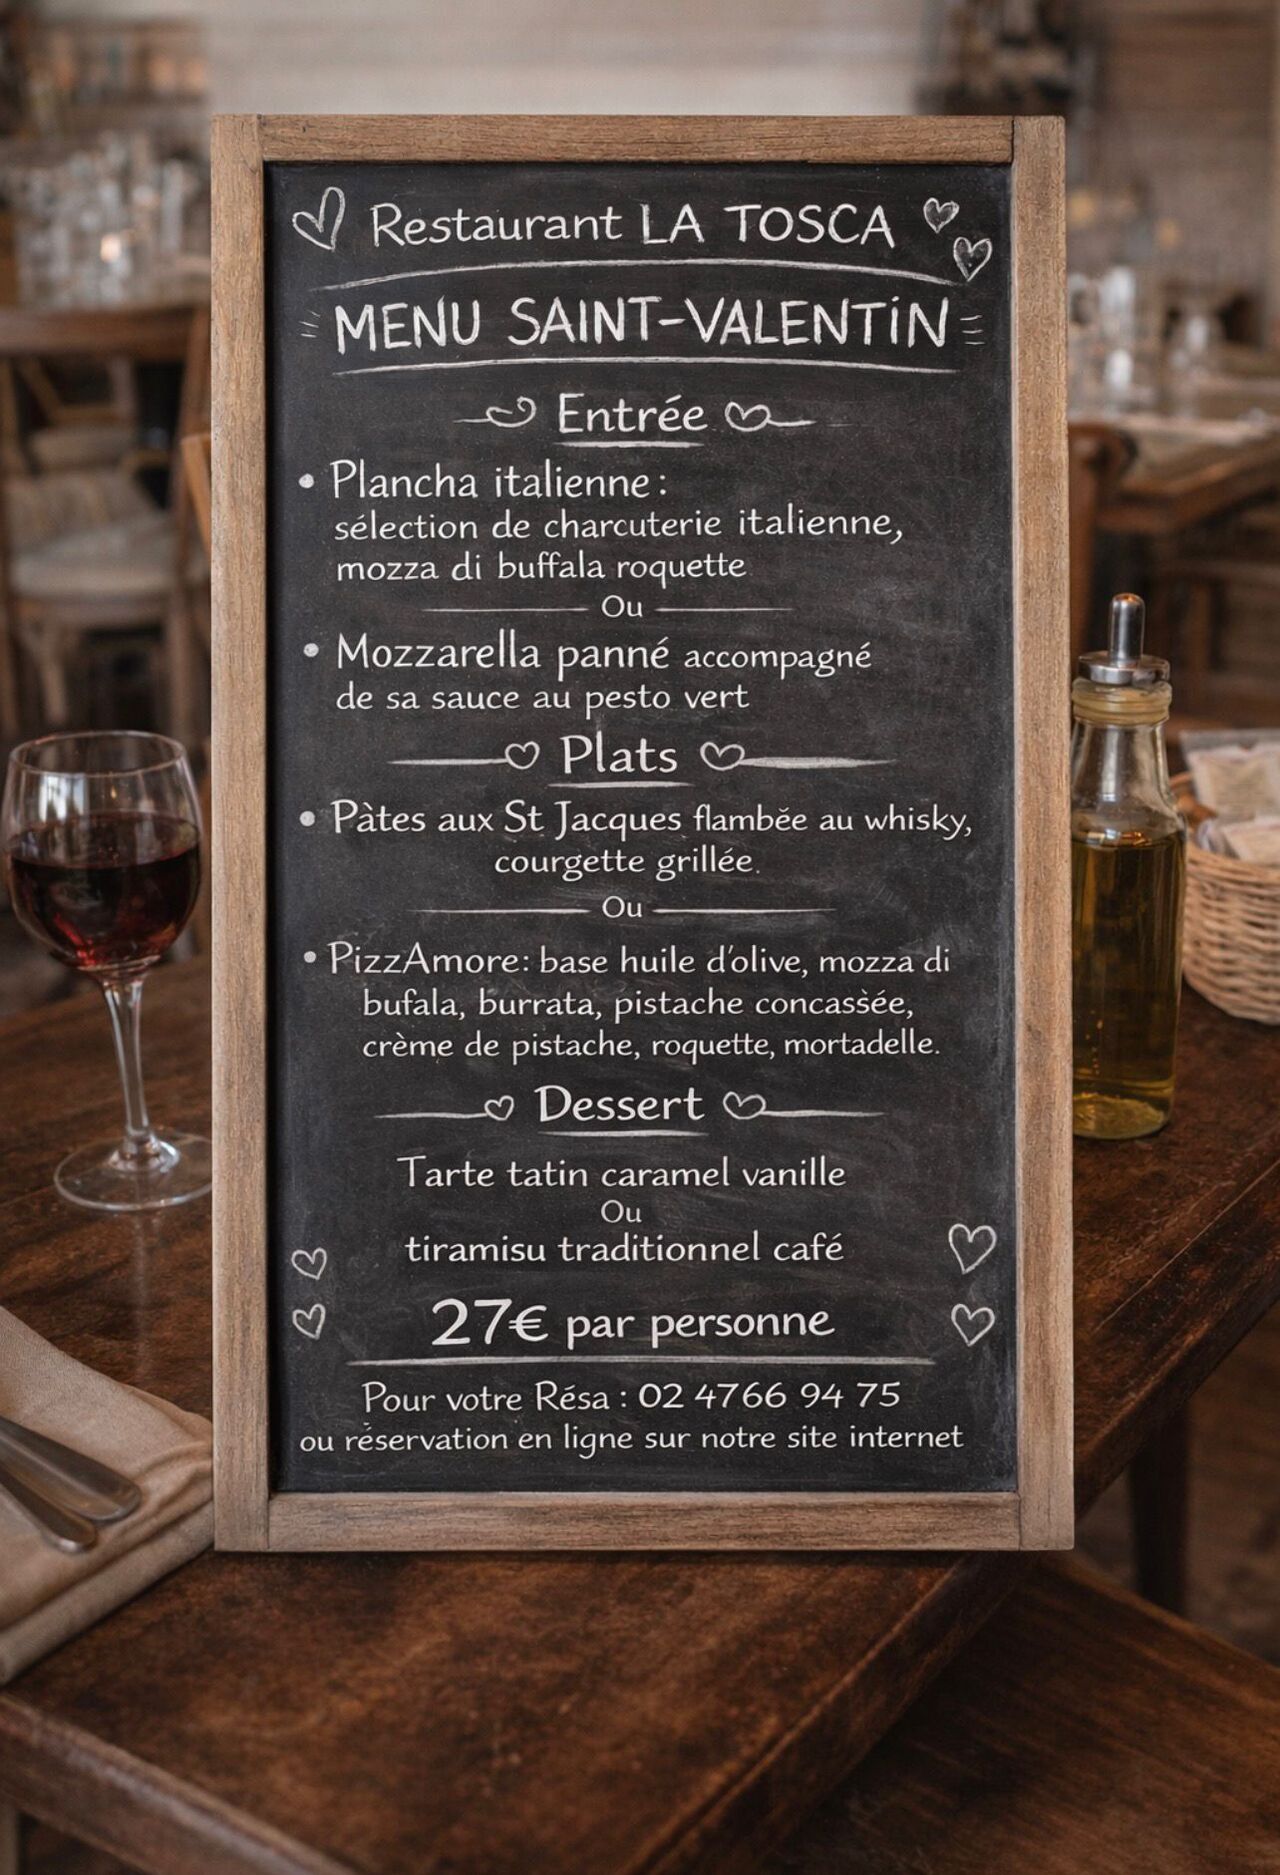 Restaurant LA TOSCA
MENU SAINT-VALENTIN
Entrée
• Plancha italienne :
sélection de charcuterie italienne,
mozza di buffala roquette
Ou
• Mozzarella panné accompagné
de sa sauce au pesto vert
Plats
• Pàtes aux St Jacques flambĕe au whisky,
courgette grillée.
Ou
• PizzAmore: base huile d'olive, mozza di
bufala, burrata, pistache concassée,
crème de pistache, roquette, mortadelle.
Dessert
Tarte tatin caramel vanille
Ou
tiramisu traditionnel café
27€ par personne
Pour votre Résa : 02 4766 94 75
ou réservation en ligne sur notre site internet